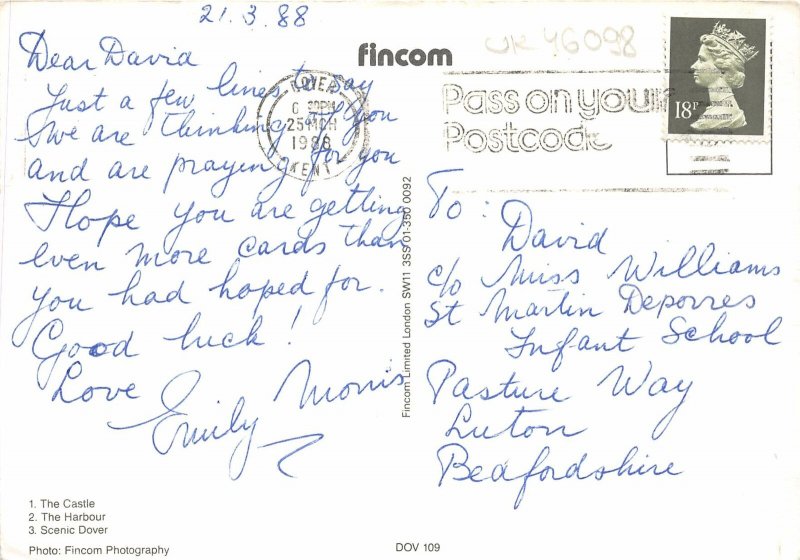 21.3.88
Dear David
Just a few lines to say
we are thinking of you
and are praying for you
Hope you are getting
even more cards than
you had hoped for.
Good luck!
Love
Emily Morris
1. The Castle
2. The Harbour
3. Scenic Dover
Photo: Fincom Photography
fincom
UK 46098
DOVER
6 30PM
25 MCH
1988
KENT
Pass on your
Postcode
18P
Fincom Limited London SW11 3SS 01-350 0092
To:
David
c/o Miss Williams
St Martin Deporres
Infant School
Pasture Way
Luton
Bedfordshire
DOV 109